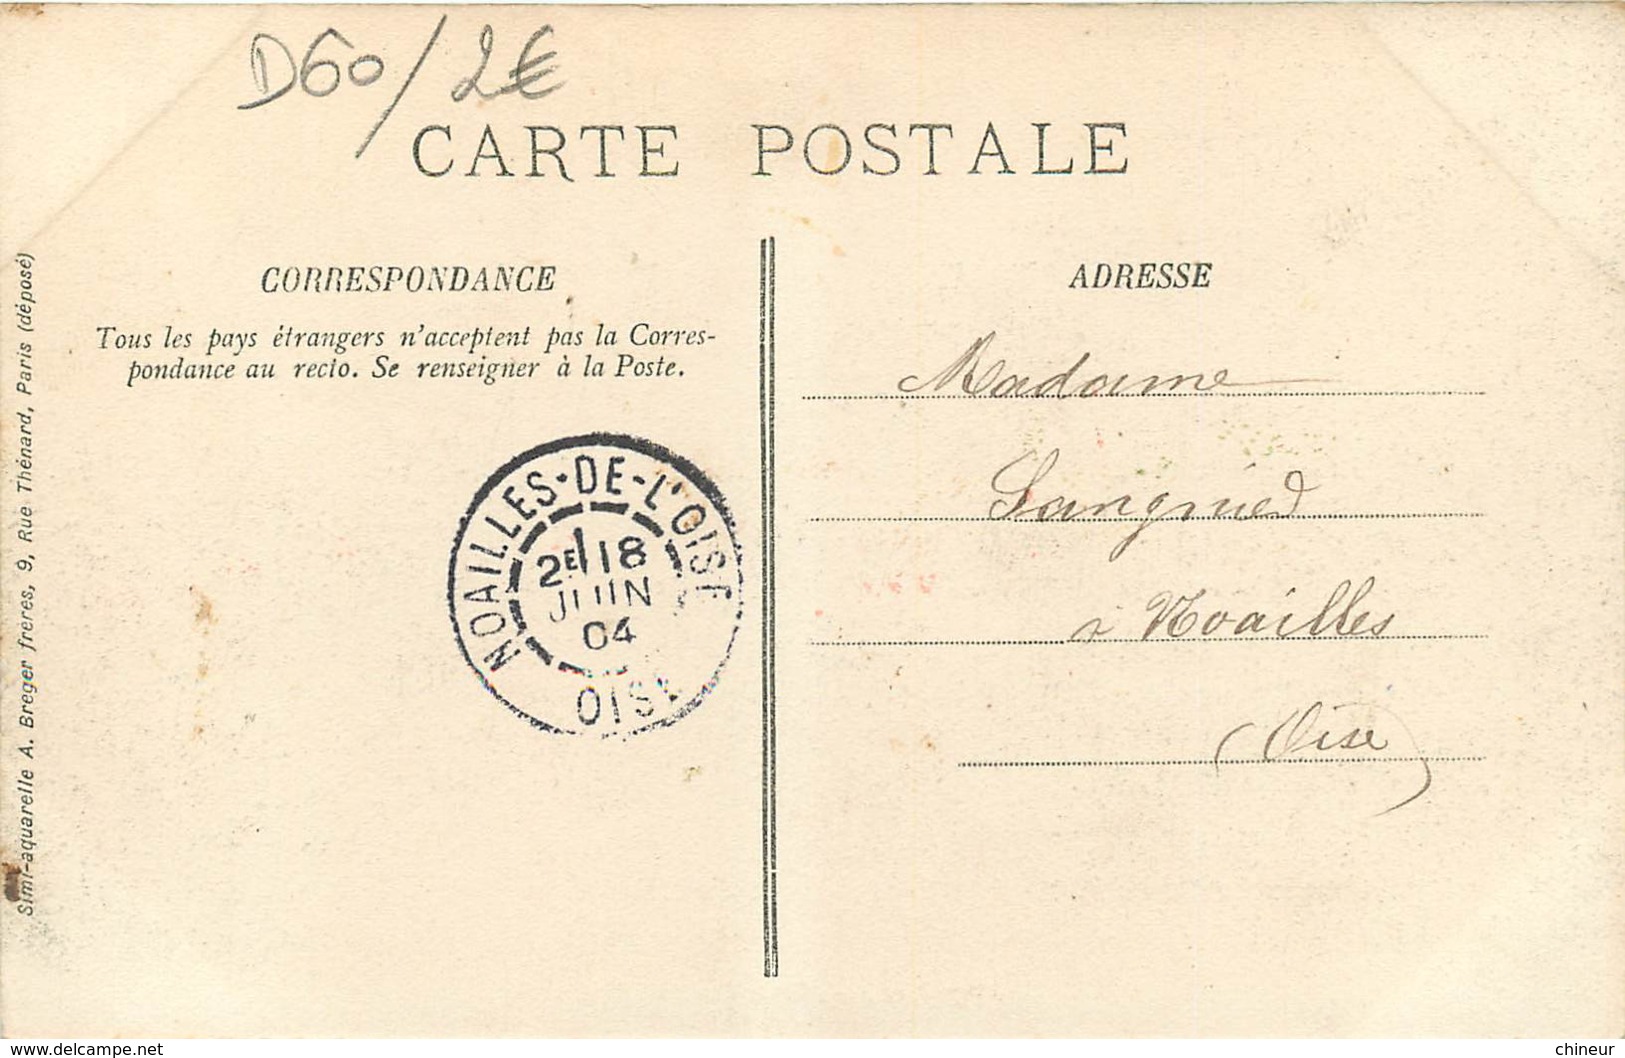 D60/2€
CARTE POSTALE
CORRESPONDANCE
Tous les pays étrangers n'acceptent pas la Corres-
pondance au recto. Se renseigner à la Poste.
ADRESSE
Madame
à Noailles
(Oise)
NOAILLES-DE-L'OISE
2E 18
JUIN
04
OISE
Simi-aquarelle A. Breger frères, 9, Rue Thénard, Paris (déposé)
www.delcampe.net
chineur